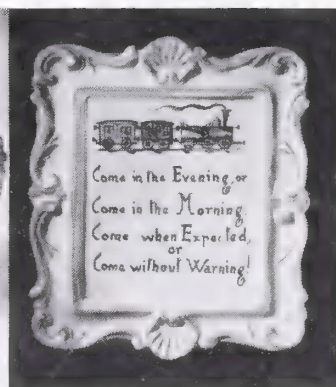 Come in the Evening, or
Come in the Morning
Come when Expected,
or
Come without Warning!